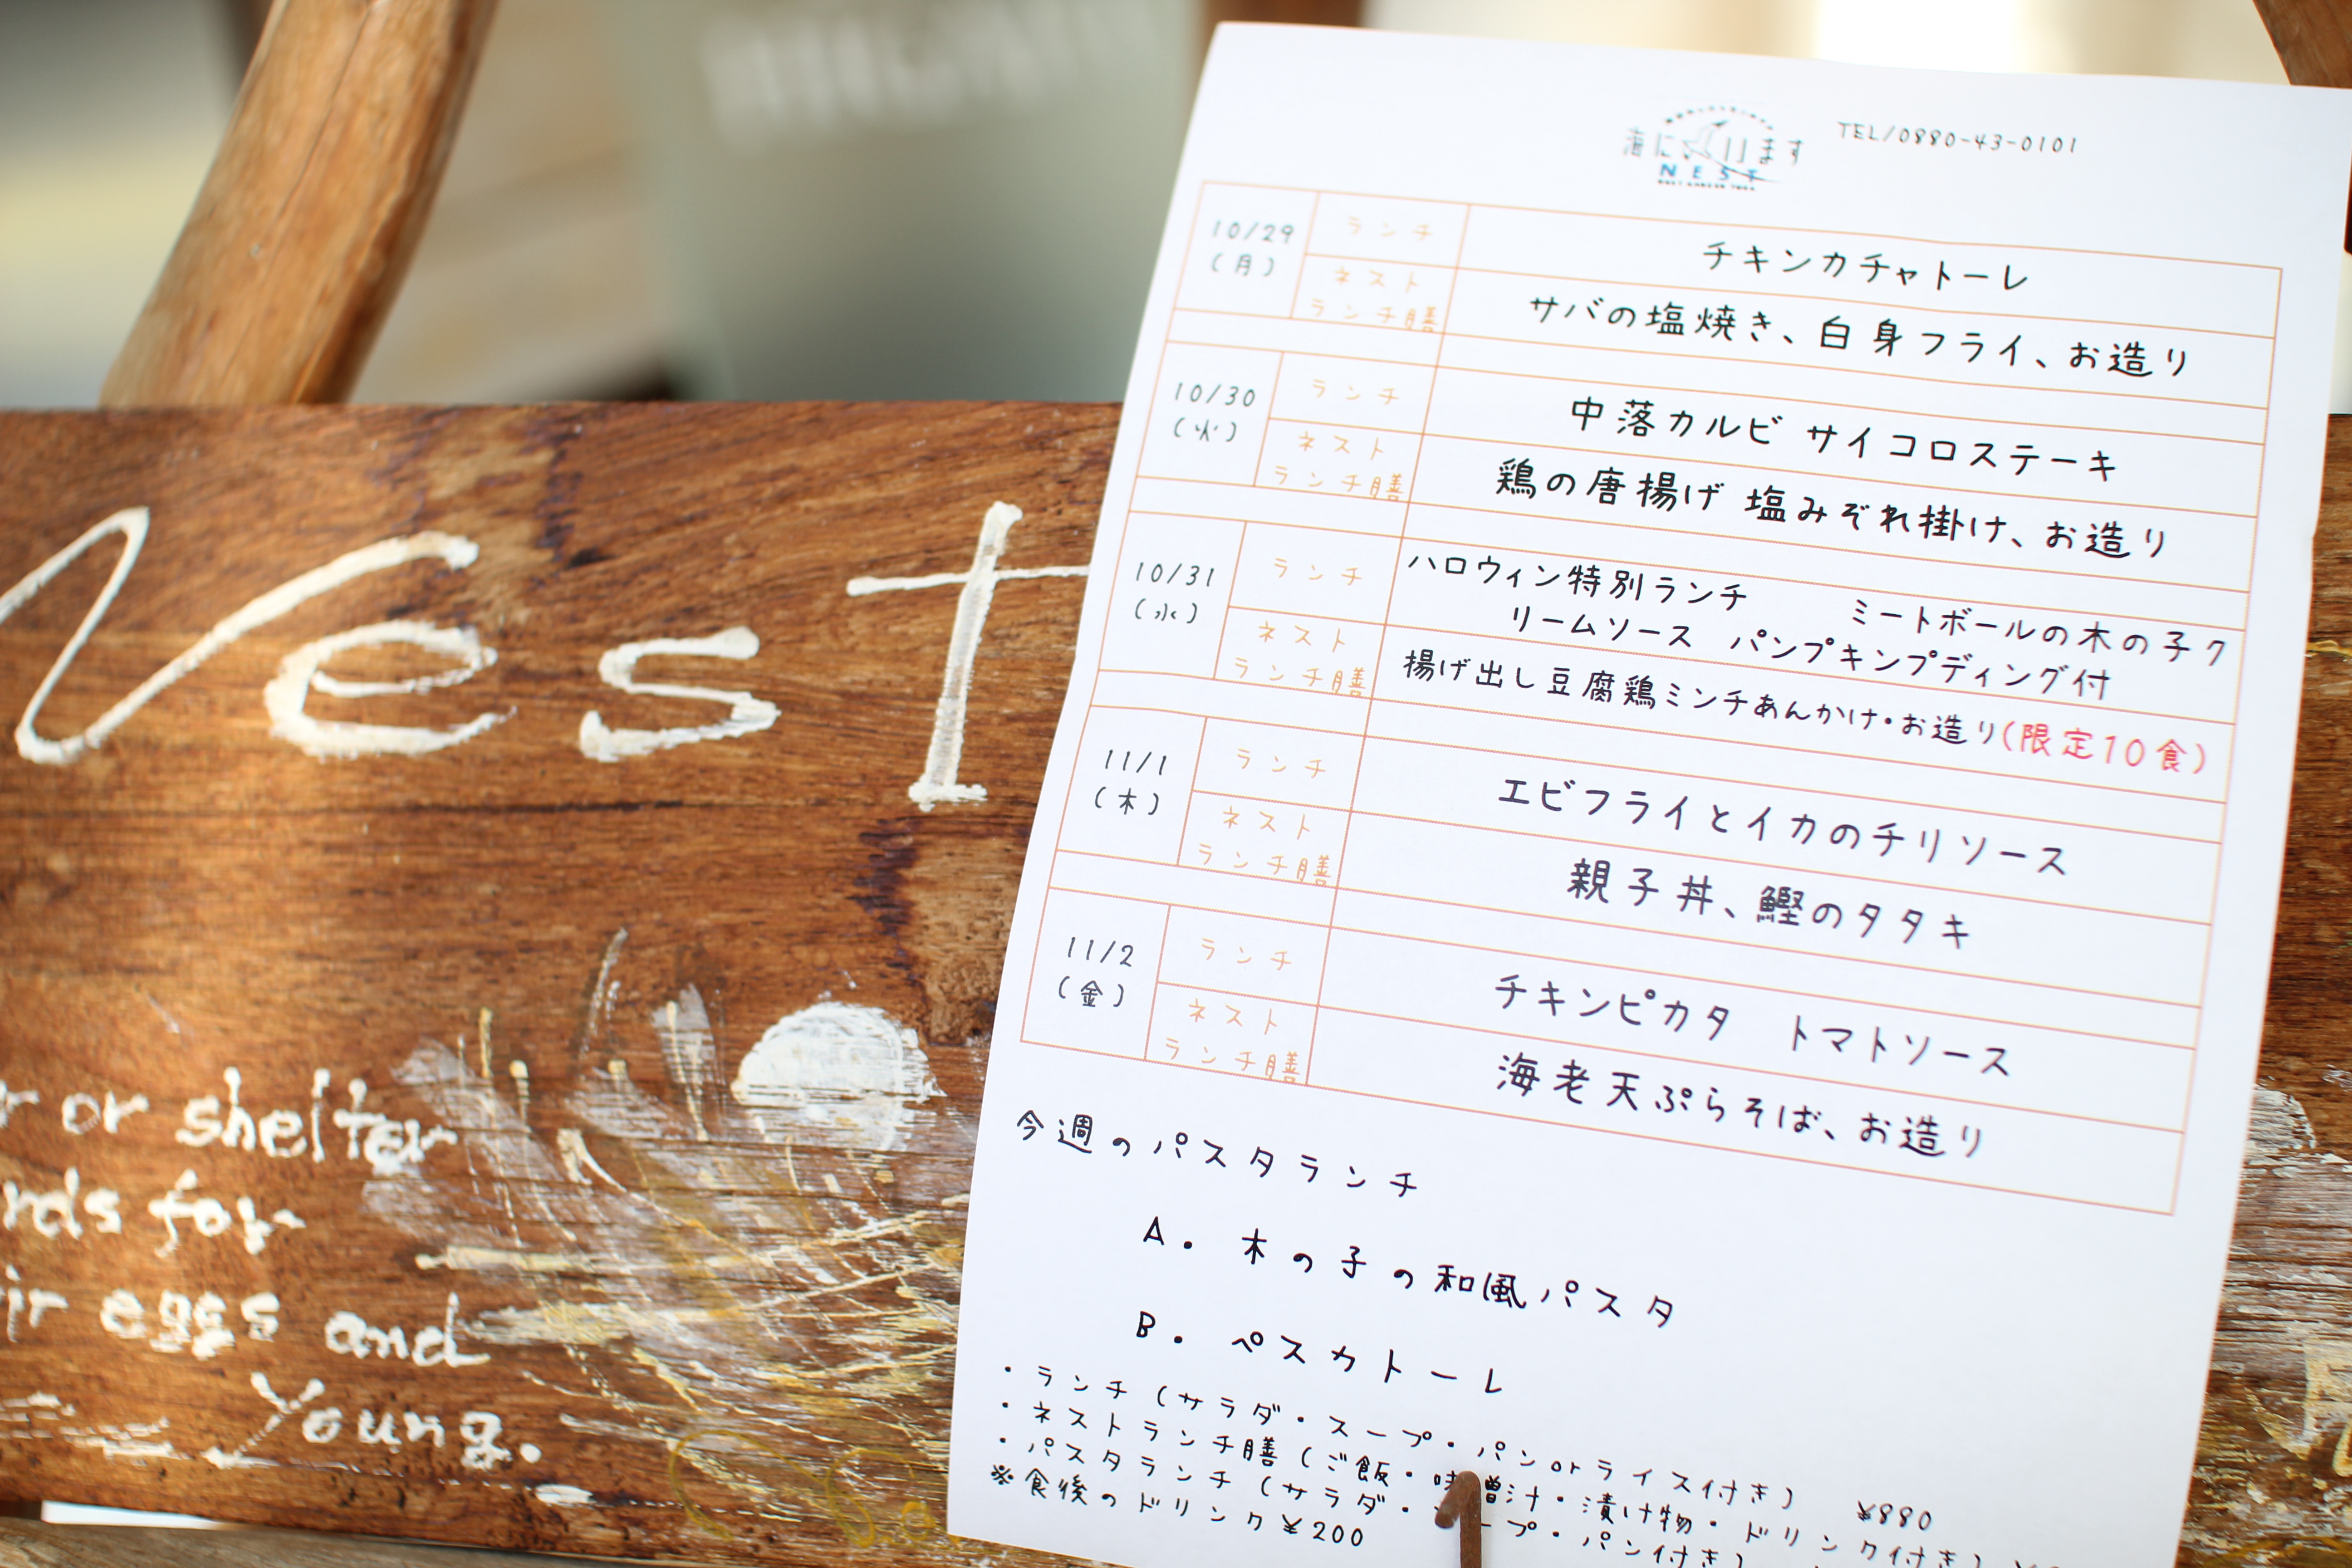 Nest
r or shelter
rds for
ir eggs and
Young.
海に ます
NEST
TEL/0880-43-0101
10/29
(月)
ランチ
チキンカチャトーレ
ネスト
ランチ膳
サバの塩焼き、白身フライ、お造り
10/30
(火)
ランチ
中落カルビ サイコロステーキ
ネスト
ランチ膳
鶏の唐揚げ 塩みぞれ掛け、お造り
10/31
(水)
ランチ
ハロウィン特別ランチ ミートボールの木の子ク
リームソース パンプキンプディング付
ネスト
ランチ膳
揚げ出し豆腐鶏ミンチあんかけ・お造り(限定10食)
11/1
(木)
ランチ
エビフライとイカのチリソース
ネスト
ランチ膳
親子丼、鰹のタタキ
11/2
(金)
ランチ
チキンピカタ トマトソース
ネスト
ランチ膳
海老天ぷらそば、お造り
今週のパスタランチ
A. 木の子の和風パスタ
B. ペスカトーレ
・ランチ(サラダ・スープ・パンorライス付き) ¥880
・ネストランチ膳(ご飯・味噌汁・漬け物・ドリンク付き)
・パスタランチ(サラダ・スープ・パン付き)
※食後のドリンク¥200